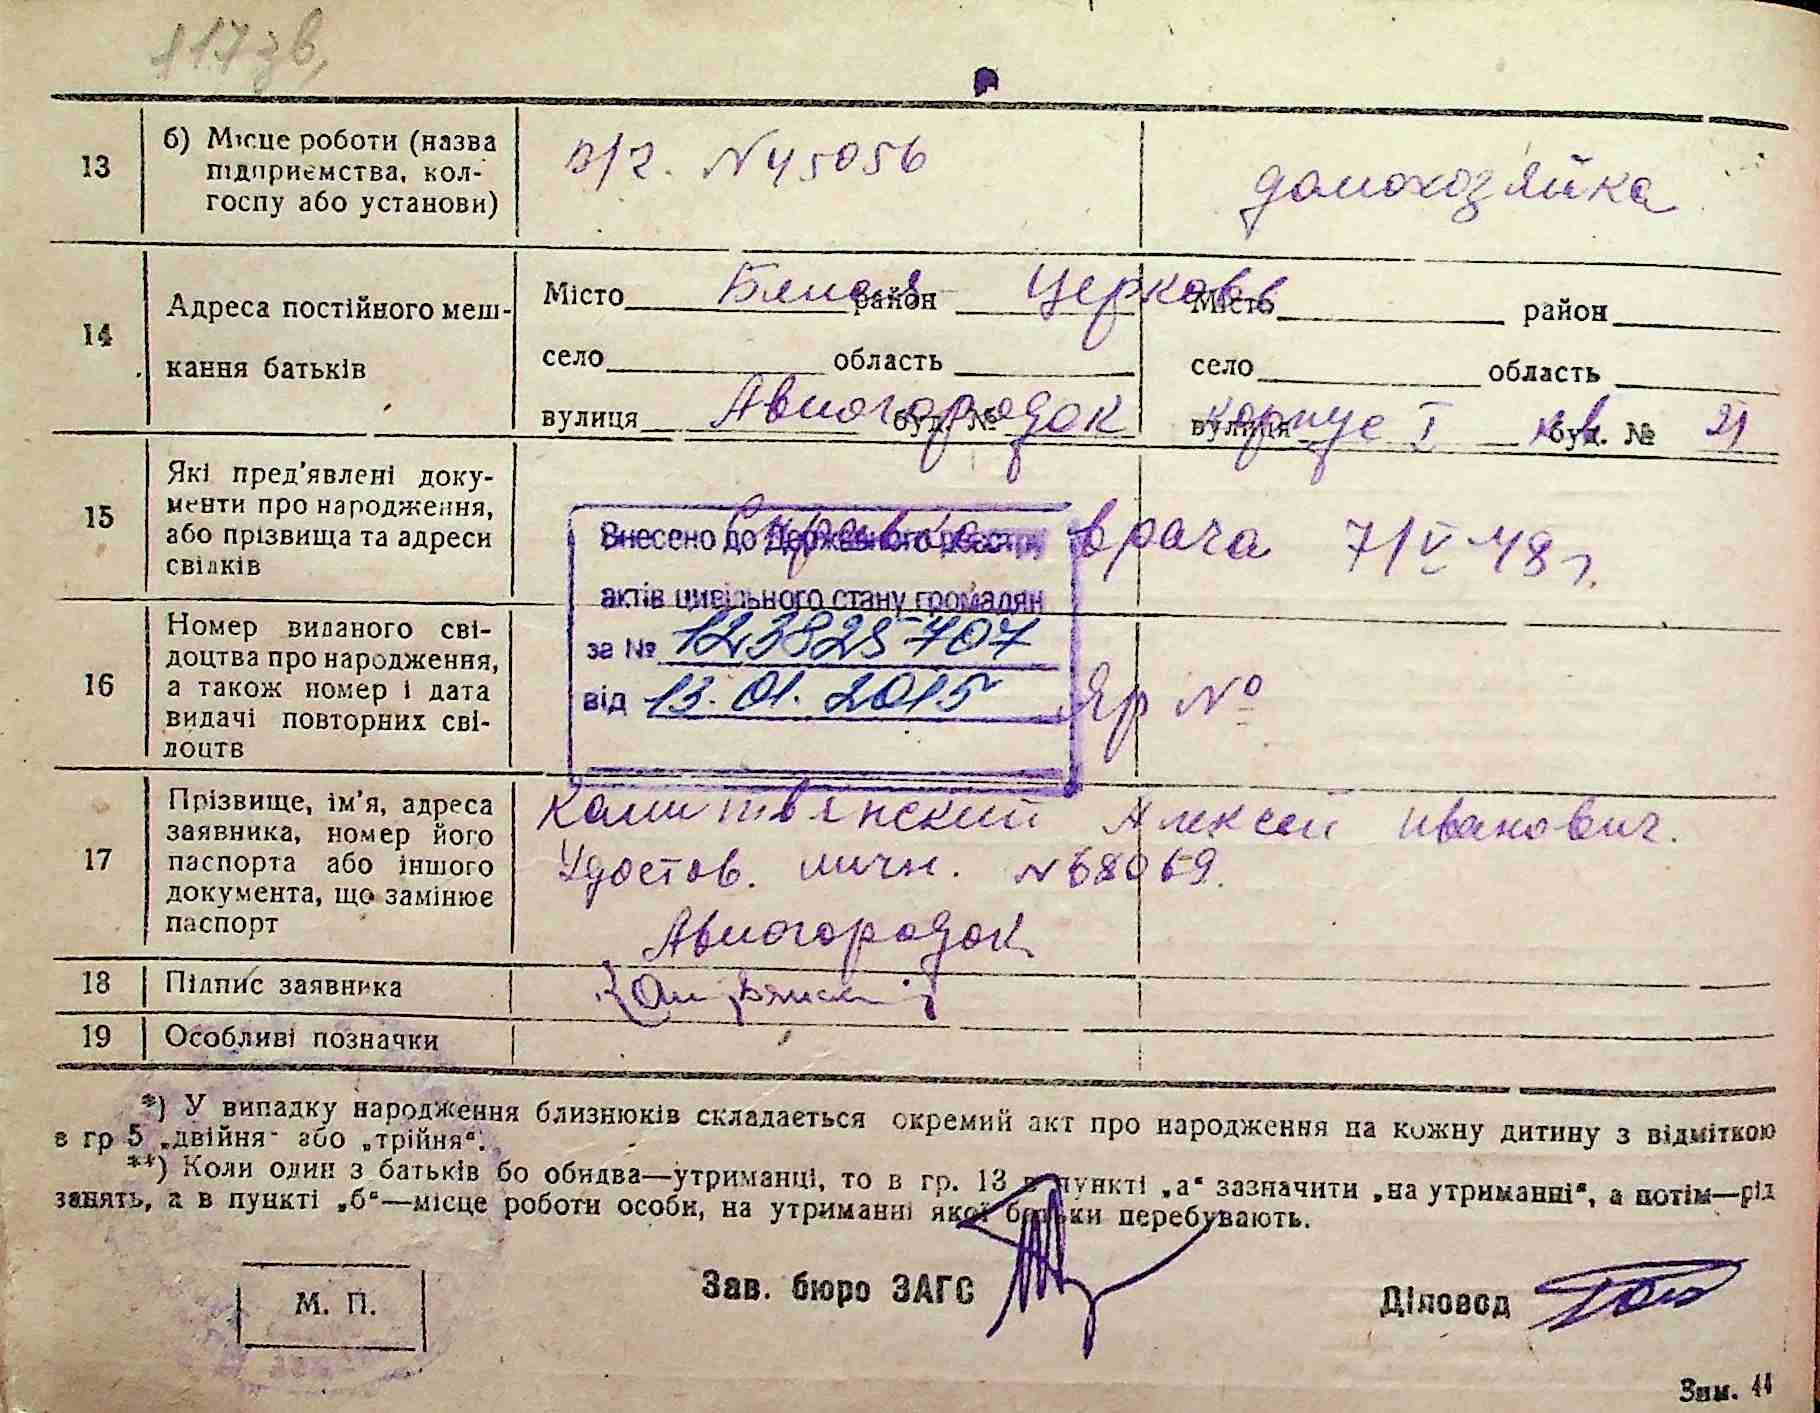 117зв,
13
б) Місце роботи (назва
підприємства, кол-
госпу або установи)
п/г. N 45056
домохозяйка
14
Адреса постійного меш-
кання батьків
Місто Белая район Церковь
село область
вулиця Авиогородок буд. №
Місто район
село область
вулиця корпус I кв буд. № 21
15
Які пред'явлені доку-
менти про народження,
або прізвища та адреси
свідків
Справка врача 7/V-48 г.
Внесено до Державного реєстру
актів цивільного стану громадян
за № 123825707
від 13.01.2015
16
Номер виданого сві-
доцтва про народження,
а також номер і дата
видачі повторних сві-
доцтв
Яр №
17
Прізвище, ім'я, адреса
заявника, номер його
паспорта або іншого
документа, що замінює
паспорт
Алексей Иванович.
Удостов. личн. N 68069.
Авиогородок
18
Підпис заявника
19
Особливі позначки
*) У випадку народження близнюків складається окремий акт про народження на кожну дитину з відміткою
в гр 5 „двійня" або „трійня".
**) Коли один з батьків бо обидва—утриманці, то в гр. 13 в пункті „а" зазначити „на утриманні", а потім—рід
занять, а в пункті „б"—місце роботи особи, на утриманні якої батьки перебувають.
М. П.
Зав. бюро ЗАГС
Діловод
Зам. 44